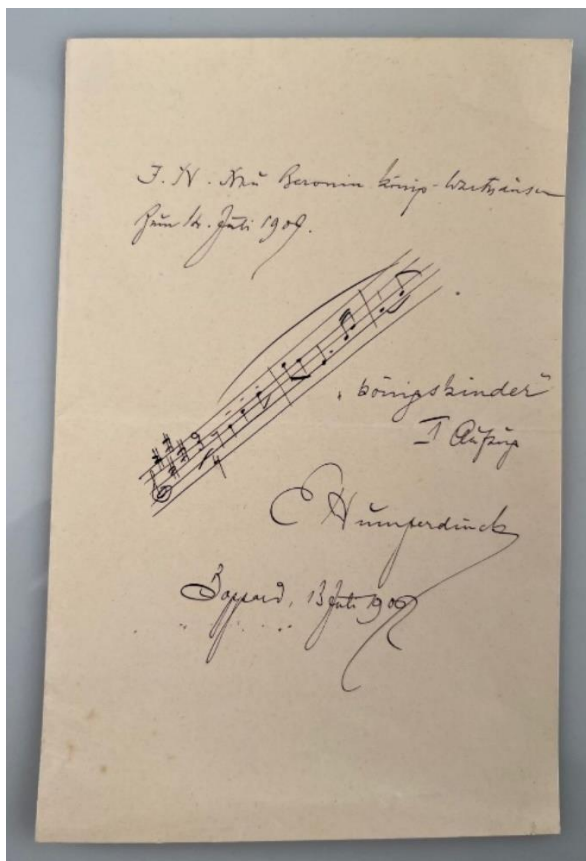 I. N. Frau Baronin König-Warthausen
zum 14. Juli 1909.
"Königskinder"
I Aufzug
E Humperdinck
Boppard, 13 Juli 1909